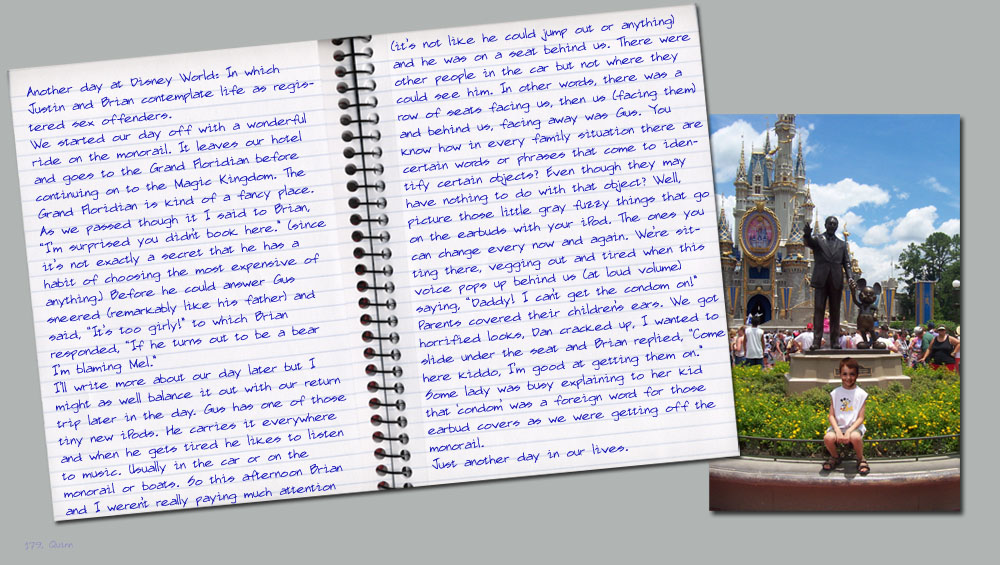 Another day at Disney World: In which
Justin and Brian contemplate life as regis-
tered sex offenders.
We started our day off with a wonderful
ride on the monorail. It leaves our hotel
and goes to the Grand Floridian before
continuing on to the Magic Kingdom. The
Grand Floridian is kind of a fancy place.
As we passed though it I said to Brian,
"I'm surprised you didn't book here." (since
it's not exactly a secret that he has a
habit of choosing the most expensive of
anything.) Before he could answer Gus
sneered (remarkably like his father) and
said, "It's too girly!" to which Brian
responded, "If he turns out to be a bear
I'm blaming Mel."
I'll write more about our day later but I
might as well balance it out with our return
trip later in the day. Gus has one of those
tiny new iPods. He carries it everywhere
and when he gets tired he likes to listen
to music. Usually in the car or on the
monorail or boats. So this afternoon Brian
and I weren't really paying much attention
(it's not like he could jump out or anything)
and he was on a seat behind us. There were
other people in the car but not where they
could see him. In other words, there was a
row of seats facing us, then us (facing them)
and behind us, facing away was Gus. You
know how in every family situation there are
certain words or phrases that come to iden-
tify certain objects? Even though they may
have nothing to do with that object? Well,
picture those little gray fuzzy things that go
on the earbuds with your iPod. The ones you
can change every now and again. We're sit-
ting there, vegging out and tired when this
voice pops up behind us (at loud volume)
saying, "Daddy! I can't get the condom on!"
Parents covered their children's ears. We got
horrified looks, Dan cracked up, I wanted to
slide under the seat and Brian replied, "Come
here kiddo, I'm good at getting them on."
Some lady was busy explaining to her kid
that 'condom' was a foreign word for those
earbud covers as we were getting off the
monorail.
Just another day in our lives.
179. Quinn